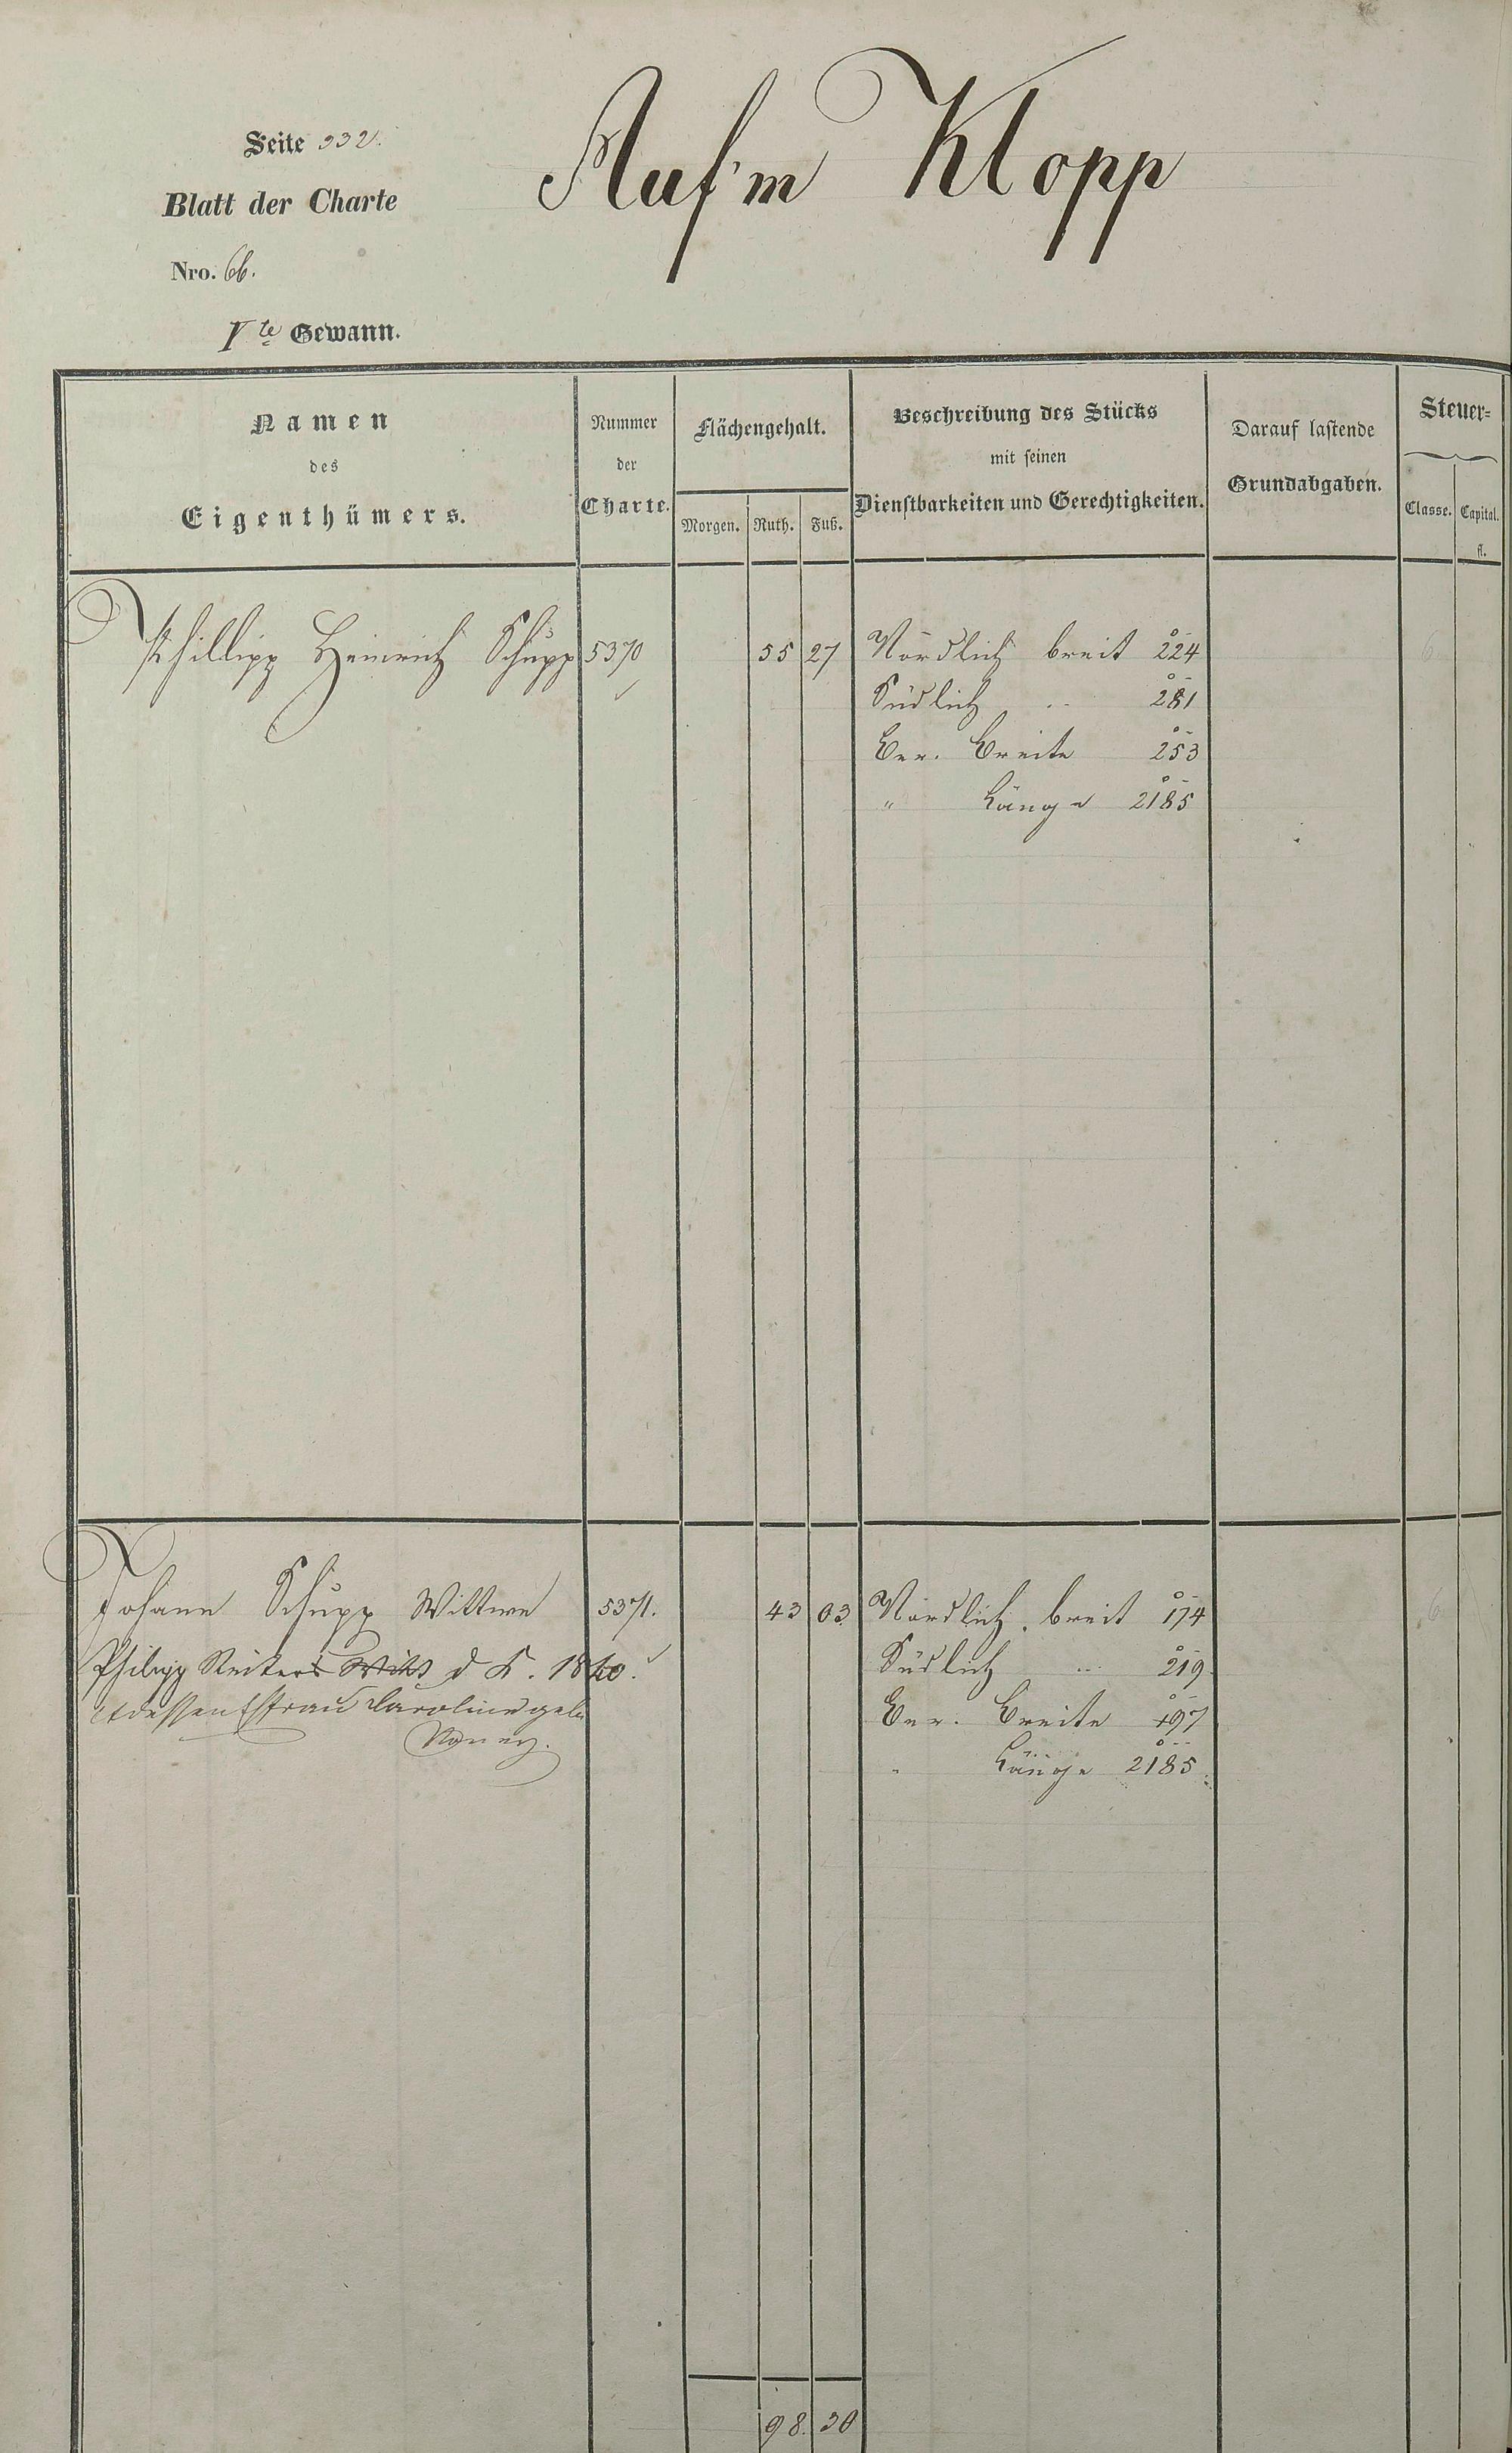 Seite 332.
Auf'm Klopp
Blatt der Charte
Nro. 66.
Ite Gewann.
Namen des Eigenthümers.
Nummer der Charte.
Flächengehalt.
Morgen. Ruth. Fuß.
Beschreibung des Stücks mit seinen Dienstbarkeiten und Gerechtigkeiten.
Darauf lastende Grundabgaben.
Steuer=
Classe. Capital.
fl.
Phillipp Heinrich Schupp 5370 55 27 Nördlich breit 224 6
Südlich " 281
Ber. Breite 253
" Länge 2185
Johann Schupp Wittwe 5371. 43 03 Nördlich breit 174 6
Philipp Reiter's Witt d. K. 1840. Südlich " 219
dessen Ehfrau Caroline geb. Ber. Breite 197
" Länge 2185
98. 30